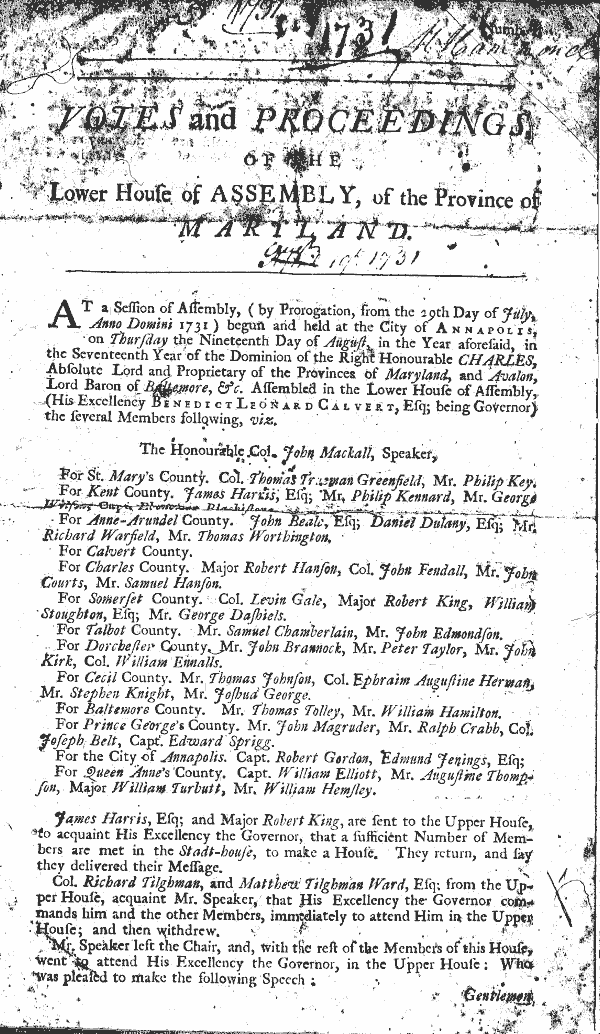 1731
1731
VOTES and PROCEEDINGS
OF THE
Lower Houſe of ASSEMBLY, of the Province of
MARYLAND.
19th 1731
AT a Seſſion of Aſſembly, (by Prorogation, from the 29th Day of July,
Anno Domini 1731) begun and held at the City of ANNAPOLIS,
on Thurſday the Nineteenth Day of Auguſt, in the Year aforeſaid, in
the Seventeenth Year of the Dominion of the Right Honourable CHARLES,
Abſolute Lord and Proprietary of the Provinces of Maryland, and Avalon,
Lord Baron of Baltemore, &c. Aſſembled in the Lower Houſe of Aſſembly,
(His Excellency BENEDICT LEONARD CALVERT, Eſq; being Governor)
the ſeveral Members following, viz.
The Honourable Col. John Mackall, Speaker,
For St. Mary's County. Col. Thomas Trueman Greenfield, Mr. Philip Key.
For Kent County. James Harris, Eſq; Mr. Philip Kennard, Mr. George
Wilſon, Capt. Ebenezer Blackiſton.
For Anne-Arundel County. John Beale, Eſq; Daniel Dulany, Eſq; Mr.
Richard Warfield, Mr. Thomas Worthington.
For Calvert County.
For Charles County. Major Robert Hanſon, Col. John Fendall, Mr. John
Courts, Mr. Samuel Hanſon.
For Somerſet County. Col. Levin Gale, Major Robert King, William
Stoughton, Eſq; Mr. George Daſhiels.
For Talbot County. Mr. Samuel Chamberlain, Mr. John Edmondſon.
For Dorcheſter County. Mr. John Brannock, Mr. Peter Taylor, Mr. John
Kirk, Col. William Ennalls.
For Cecil County. Mr. Thomas Johnſon, Col. Ephraim Auguſtine Herman,
Mr. Stephen Knight, Mr. Joſhua George.
For Baltemore County. Mr. Thomas Tolley, Mr. William Hamilton.
For Prince George's County. Mr. John Magruder, Mr. Ralph Crabb, Col.
Joſeph Belt, Capt. Edward Sprigg.
For the City of Annapolis. Capt. Robert Gordon, Edmund Jenings, Eſq;
For Queen Anne's County. Capt. William Elliott, Mr. Auguſtine Thomp-
ſon, Major William Turbutt, Mr. William Hemſley.
James Harris, Eſq; and Major Robert King, are ſent to the Upper Houſe,
to acquaint His Excellency the Governor, that a ſufficient Number of Mem-
bers are met in the Stadt-houſe, to make a Houſe. They return, and ſay
they delivered their Meſſage.
Col. Richard Tilghman, and Matthew Tilghman Ward, Eſq; from the Up-
per Houſe, acquaint Mr. Speaker, that His Excellency the Governor com-
mands him and the other Members, immediately to attend Him in the Upper
Houſe; and then withdrew.
Mr. Speaker left the Chair, and, with the reſt of the Members of this Houſe,
went to attend His Excellency the Governor, in the Upper Houſe: Who
was pleaſed to make the following Speech:
Gentlemen,